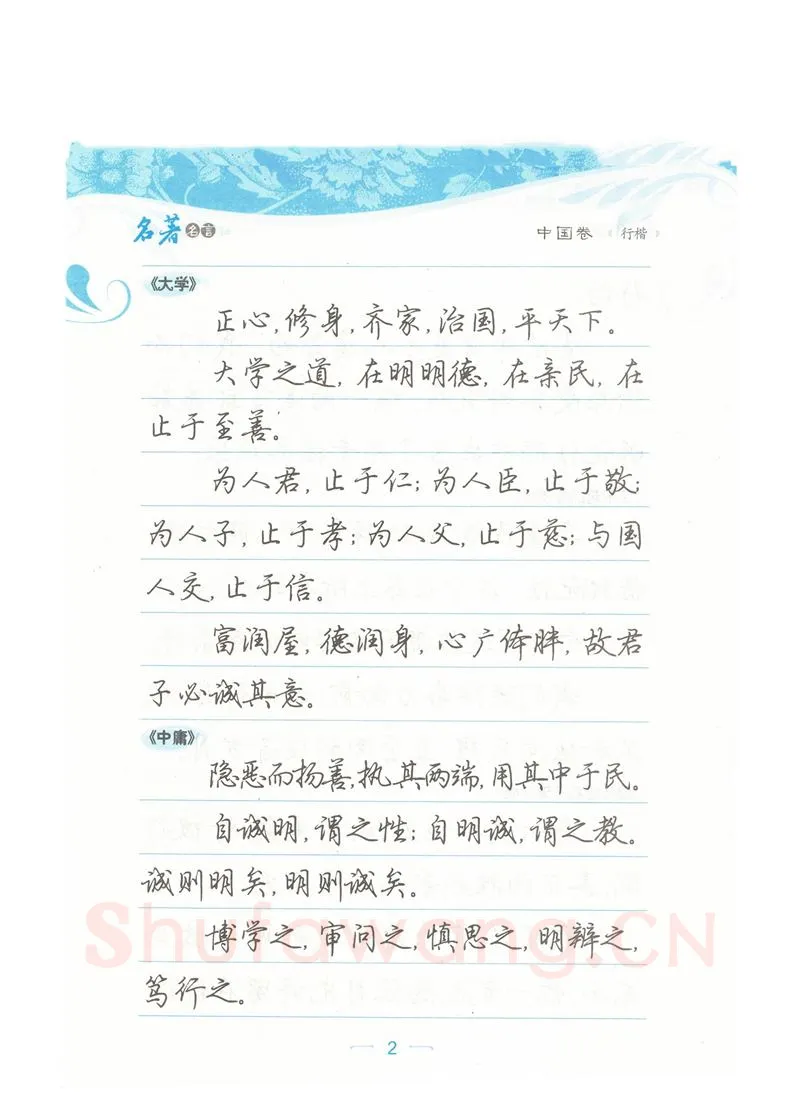 名著名言
中国卷《行楷》
《大学》
正心,修身,齐家,治国,平天下。
大学之道,在明明德,在亲民,在
止于至善。
为人君,止于仁;为人臣,止于敬;
为人子,止于孝;为人父,止于慈;与国
人交,止于信。
富润屋,德润身,心广体胖,故君
子必诚其意。
《中庸》
隐恶而扬善,执其两端,用其中于民。
自诚明,谓之性;自明诚,谓之教。
诚则明矣,明则诚矣。
博学之,审问之,慎思之,明辨之,
笃行之。
Shufawang.CN
2